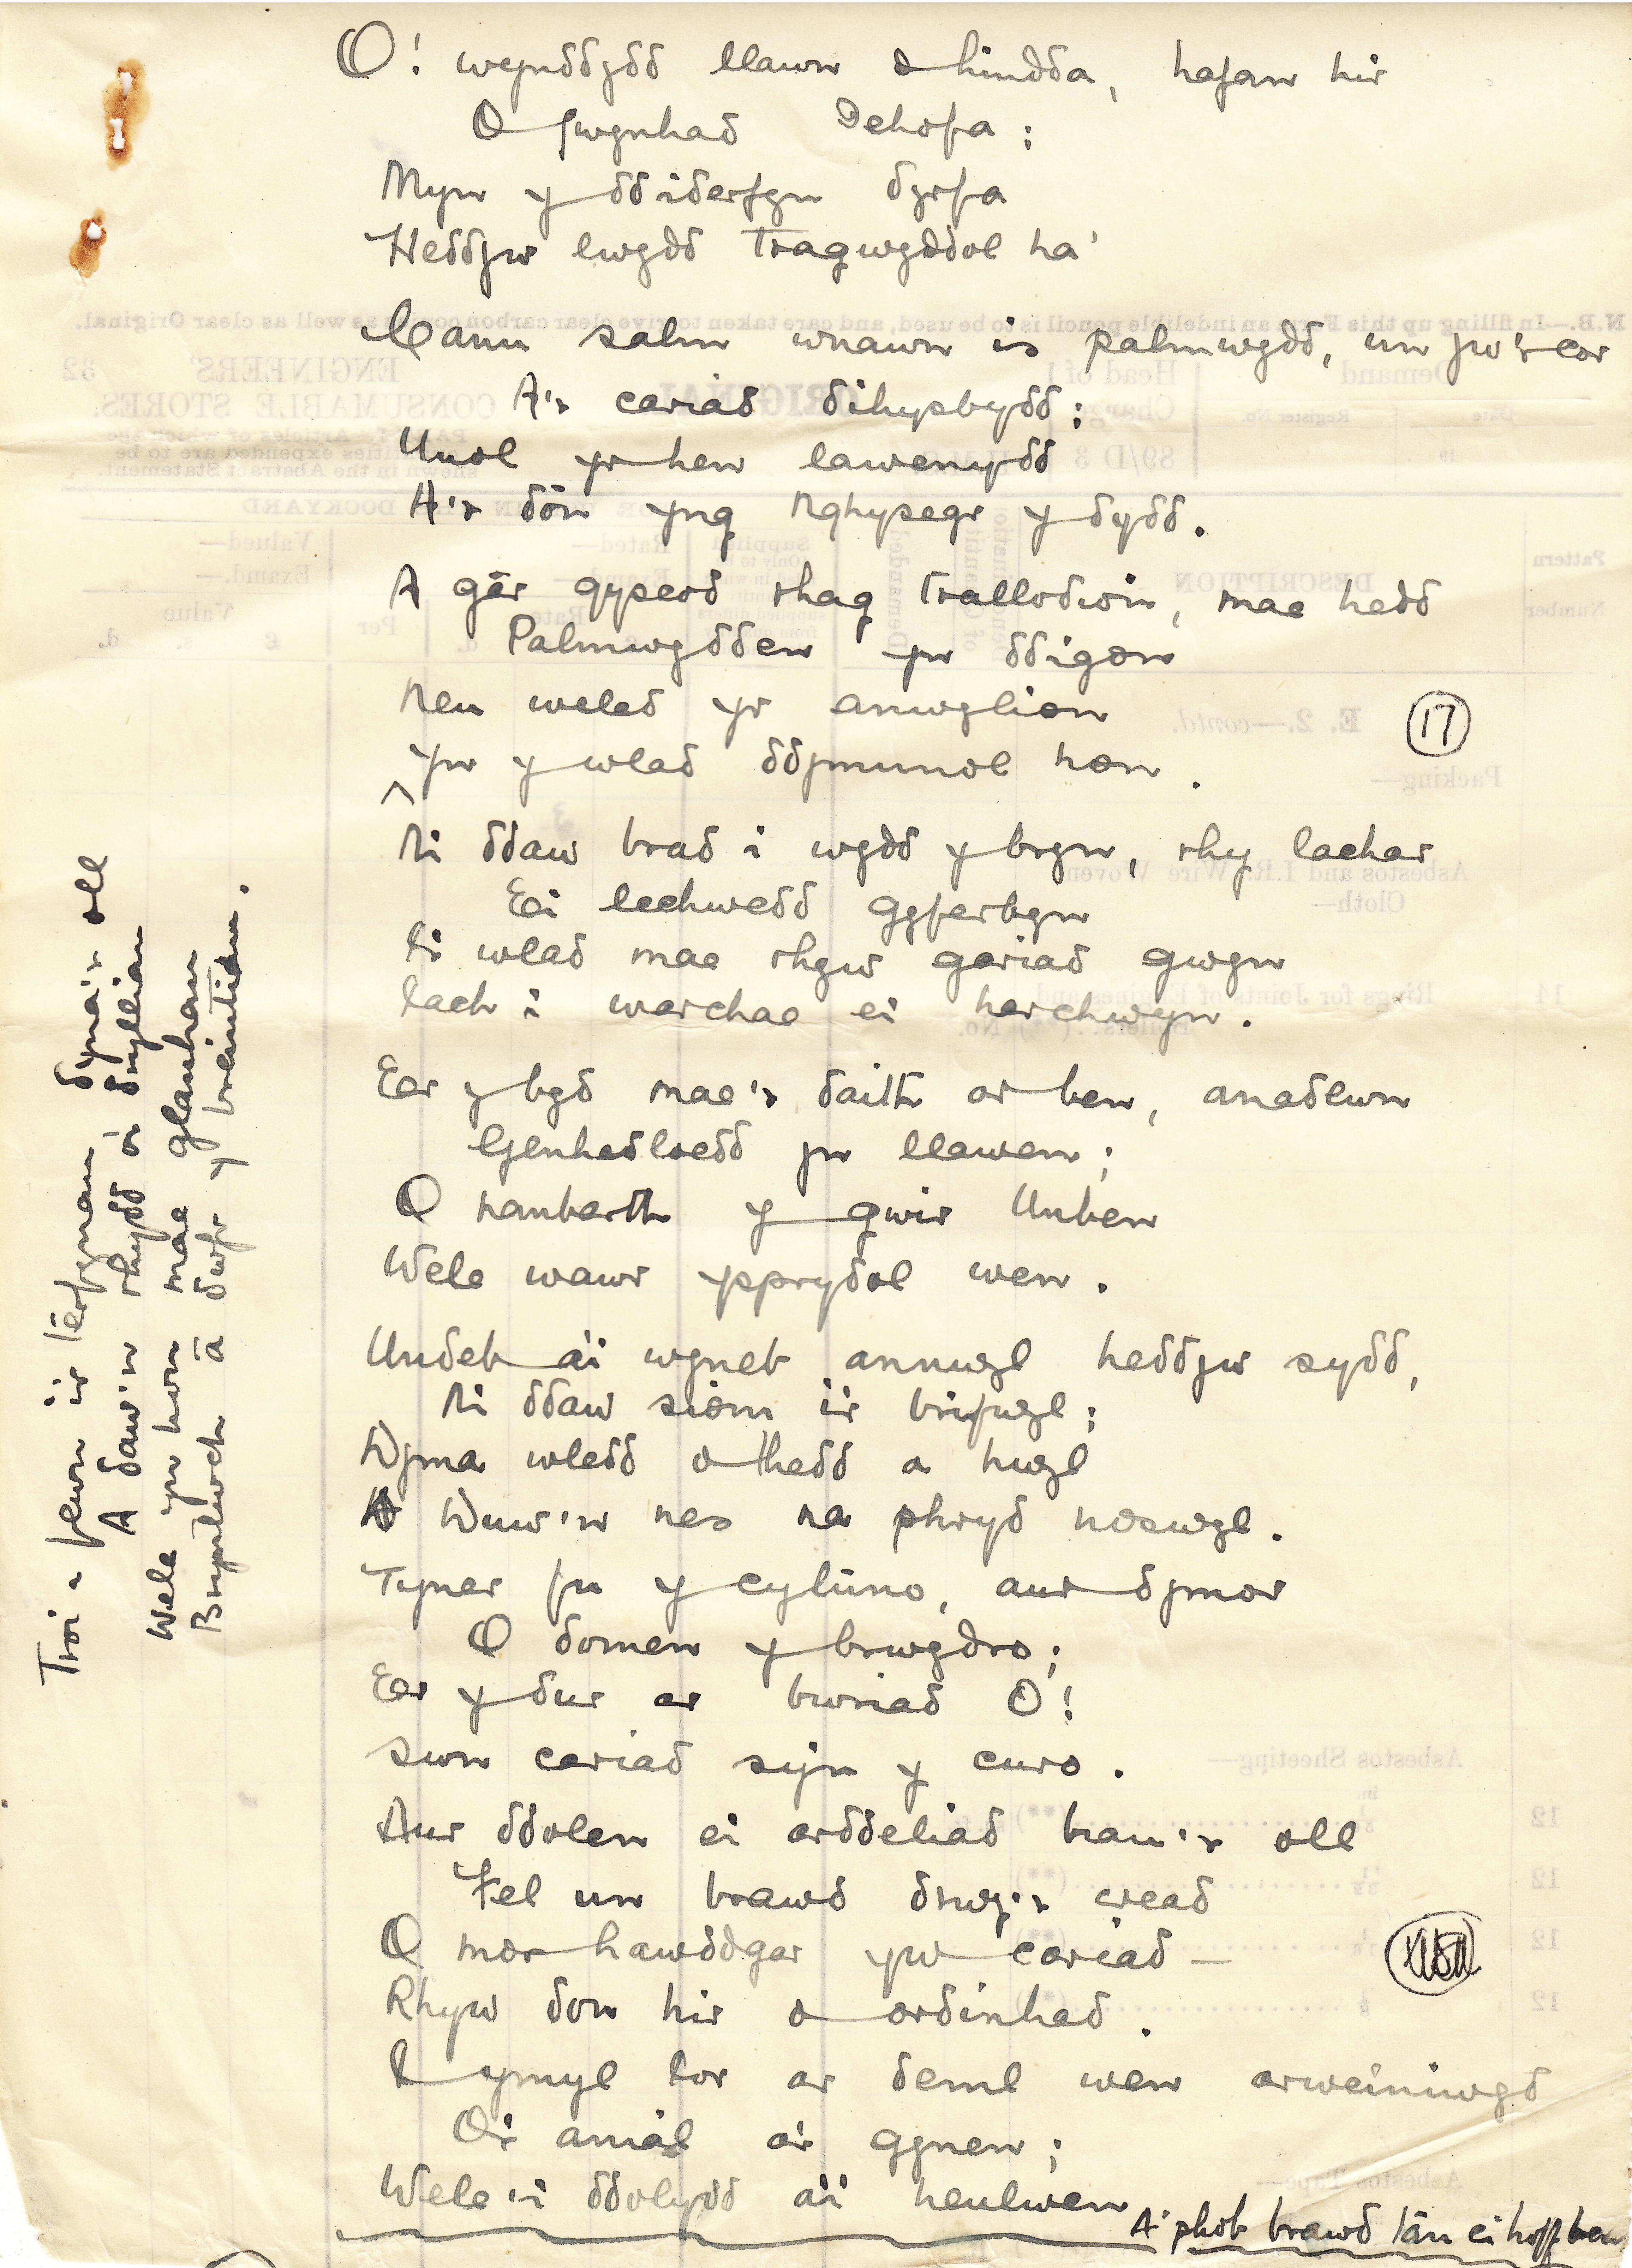 O! wynddydd llawn o hindda, hafan hir
O fwynhad Dehofa;
Myn y ddiderfyn dyrfa
Heddyw lwydd tragwyddol ha'
Canu salm wnawn is palmwydd, un yw'r cor
A'r cariad dihysbydd;
Unol yr hen lawenydd
A'r dôn yng Nghysegr y dydd.
A gâr gysgod rhag trallodion, mae hedd
Palmwydden yn ddigon
Neu weled yr anwylion
Yn y wlad ddymunol hon.
Ni ddaw brad i wydd y bryn, rhy lachar
Ei lechwedd gyferbyn
I'r wlad mae rhyw gariad gwyn
Iach i warchae ei harchwyn.
Eer y byd mae'r daith ar ben, anadlwn
Genhedloedd yn llawen;
O ranbarth y gwir Unben
Wele wawr ysprydol wen.
Undeb a'i wyneb annwyl heddyw sydd,
Ni ddaw siom i'r brifwyl;
Dyma wledd o hedd a hwyl
A Duw'n nes na phryd noswyl.
Tyner fu y cyluno, aur dymor
O domen y brwydro;
Eer y dur ar bwriad O!
Swn cariad sy'n y curo.
Aur ddolen ei arddeliad brau'r oll
Fel un brawd drwy'r cread
O mor hawddgar yw cariad –
Rhyw don hir o ordinhad.
I ymyl tor ar deml wen arweiniwyd
O'r anial a'r gynen;
Wele'i ddolydd a'i heulwen
A phob brawd tan ei hoff ben
Troi i fewn i'r terfynau dyna'r oll
A daw'n rhydd o'r drylliau
Wele yn hon mae glanhau
Brynlwch â dwfr y breintiau.
17
N.B.—In filling up this Form an indelible pencil is to be used, and care taken to give clear carbon copies as well as clear Original.
Demand
Head of
Charge
ORIGINAL
ENGINEERS'
32
CONSUMABLE STORES.
Date
Register No.
19
89/D 3
shown in the Abstract Statement.
DOCKYARD
Pattern
Number
DESCRIPTION
Demanded
Rated—
Valued—
Examd.—
Rate
Per
Value
£
s.
d.
E. 2.—contd.
Packing—
Asbestos and I.R. Wire Woven
Cloth—
14
Rings for Joints of Engines and
Asbestos Sheeting—
in.
12
12
12
12
Asbestos Tape—